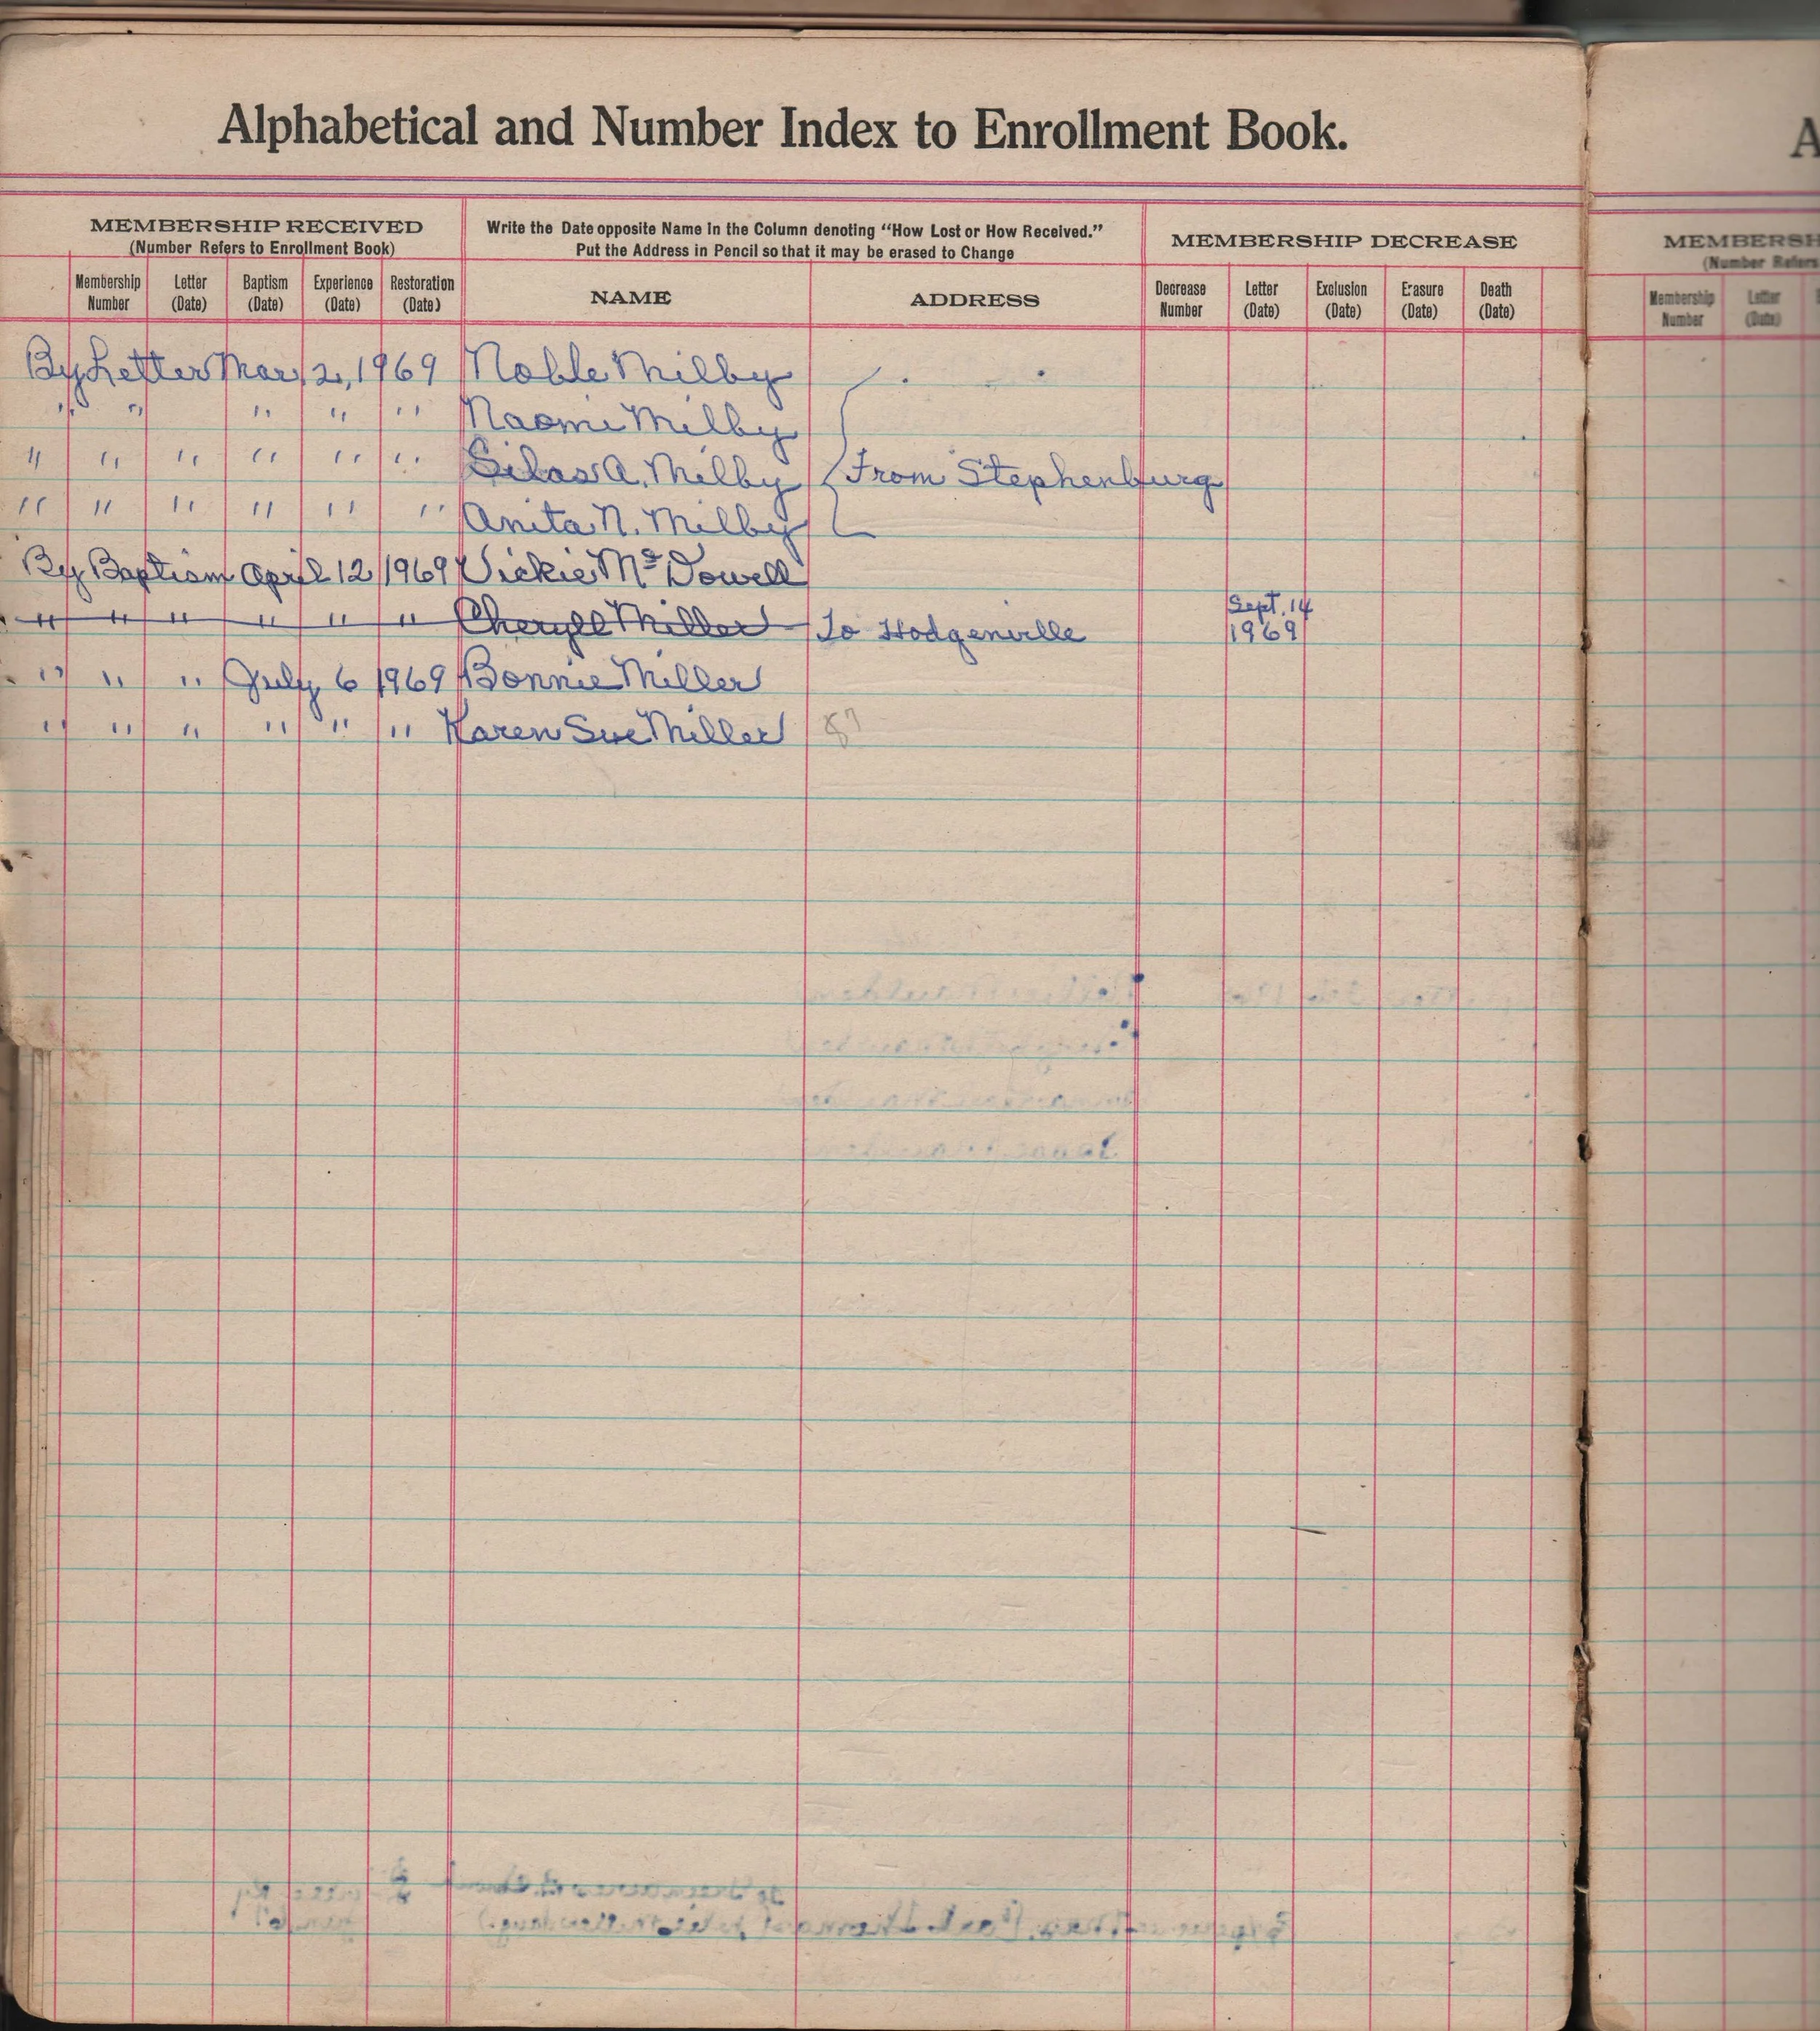 Alphabetical and Number Index to Enrollment Book.
MEMBERSHIP RECEIVED
(Number Refers to Enrollment Book)
Write the Date opposite Name in the Column denoting “How Lost or How Received.”
Put the Address in Pencil so that it may be erased to Change
MEMBERSHIP DECREASE
Membership Number Letter (Date) Baptism (Date) Experience (Date) Restoration (Date) NAME ADDRESS Decrease Number Letter (Date) Exclusion (Date) Erasure (Date) Death (Date)
By Letter Mar. 2, 1969 Noble Milby
" " " " " Naomi Milby
" " " " " " Silas A. Milby From Stephenburg
" " " " " " Anita N. Milby
By Baptism April 12 1969 Vickie McDowell
" " " " " " Cheryll Miller To Hodgenville Sept. 14 1969
" " " July 6 1969 Bonnie Miller
" " " " " " Karen Sue Miller 87
A
MEMBERSH
(Number Refers
Membership Number Letter (Date)